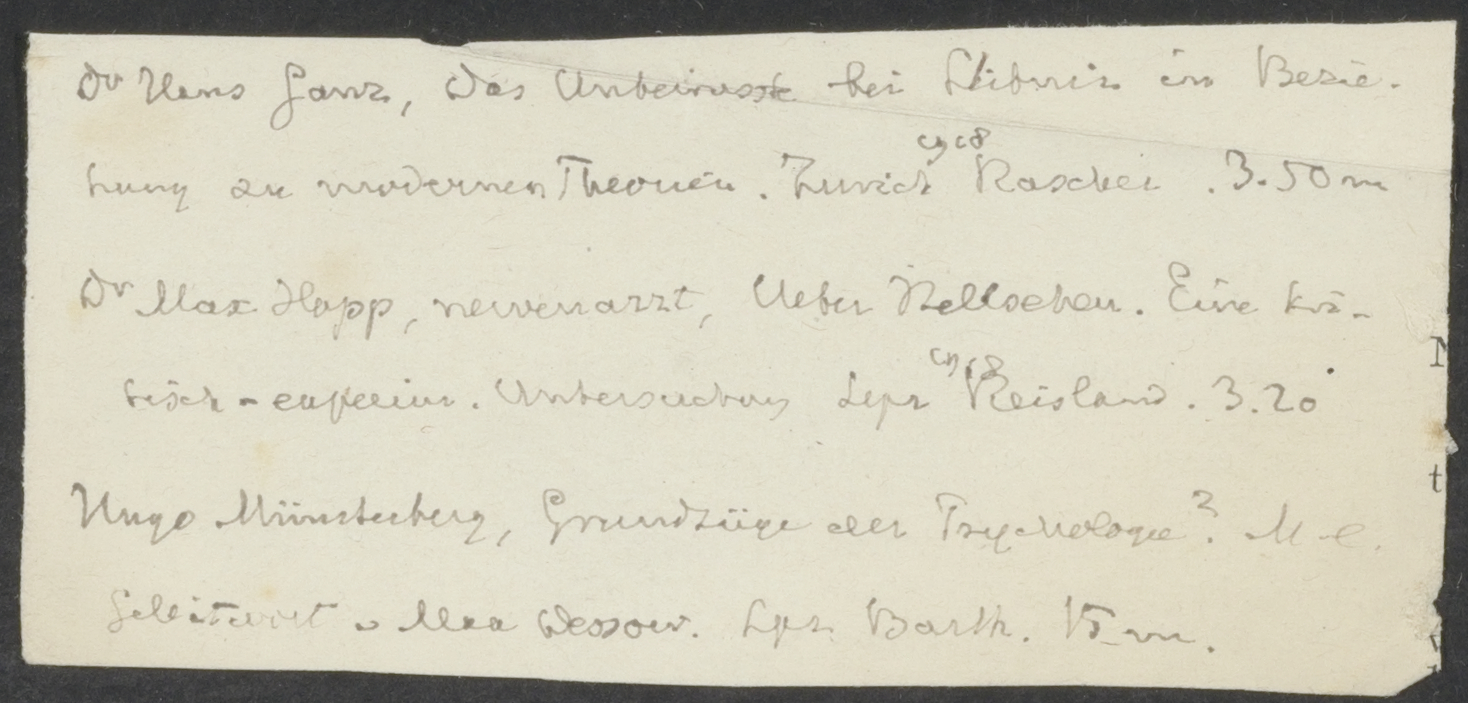 Dr Hans Ganz, Das Unbewusste bei Leibniz in Bezie-
hung zu modernen Theorien. Zurich 1918 Rascher. 3.50 m
Dr Max Hopp, nervenarzt, Ueber Hellsehen. Eine kri-
tisch-experim. Untersuchung Lpz 1918 Reisland. 3.20
Hugo Münsterberg, Grundzüge der Psychologie 2. M e.
Geleitwort v Max Dessoir. Lpz Barth. 15 m.